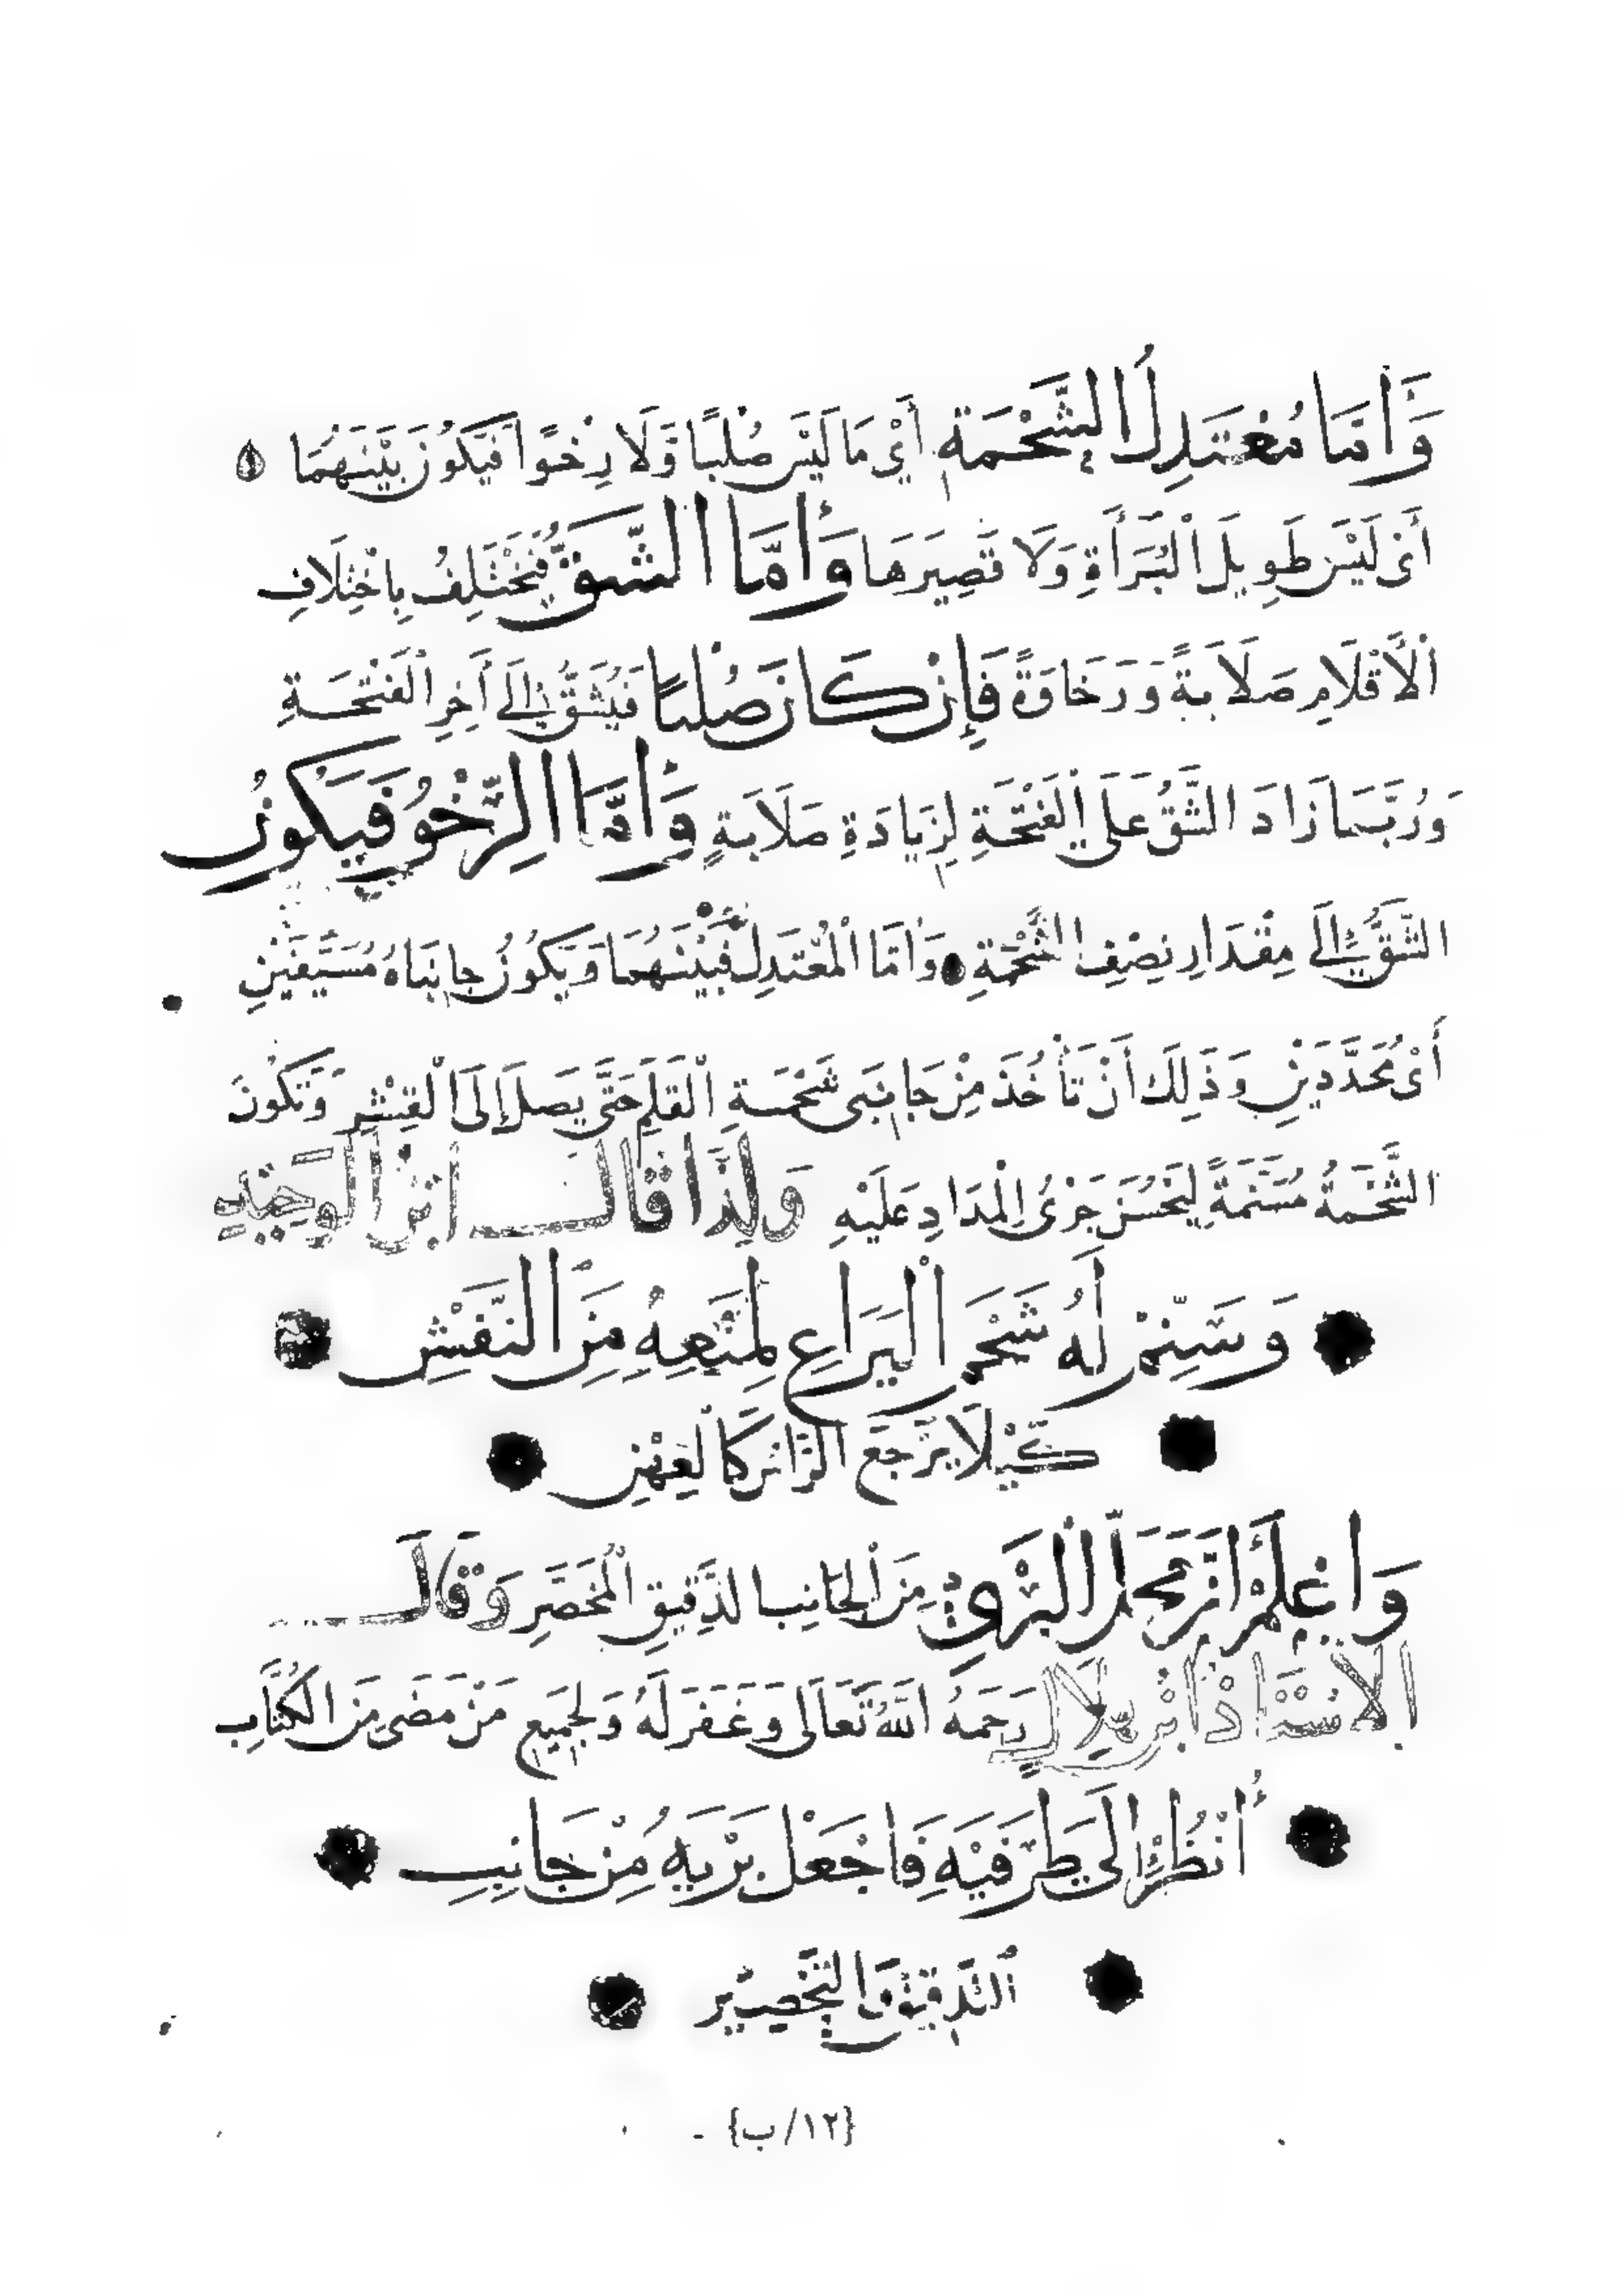 وَأَمَّا مُعْتَدِلُ الشَّحْمَةِ أَيْ مَا لَيْسَ صُلْبًا وَلَا رِخْوًا فَيَكُونُ بَيْنَهُمَا
أَىْ لَيْسَ طَوِيلَ الْبَرْأَةِ وَلَا قَصِيرَهَا وَأَمَّا الشَّقُّ فَيَخْتَلِفُ بِاخْتِلَافِ
الْأَقْلَامِ صَلَابَةً وَرَخَاوَةً فَإِنْ كَانَ صُلْبًا فَيُشَقُّ إِلَى آخِرِ الْفَتْحَةِ
وَرُبَّمَا زَادَ الشَّقُّ عَلَى الْفَتْحَةِ لِزِيَادَةِ صَلَابَةٍ وَأَمَّا الرِّخْوُ فَيَكُونُ
الشَّقُّ إِلَى مِقْدَارِ نِصْفِ الشَّحْمَةِ وَأَمَّا الْمُعْتَدِلُ فَبَيْنَهُمَا وَيَكُونُ جَانِبَاهُ مُسَيَّفَيْنِ
أَىْ مُحَدَّدَيْنِ وَذَلِكَ أَنْ تَأْخُذَ مِنْ جَانِبَىْ شَحْمَةِ الْقَلَمِ حَتَّى يَصِلَ إِلَى الْقِشْرِ وَتَكُونَ
الشَّحْمَةُ مُسَنَّمَةً لِيَحْسُنَ جَرْىُ الْمِدَادِ عَلَيْهِ وَلِذَا قَالَ ابْنُ الْوَحِيدِ
وَسَنِّمْ لَهُ شَحْمَ الْيَرَاعِ لِمَنْعِهِ مِنَ النَّفْشِ
كَيْلَا يَرْجَعَ الزَّائِرُ كَالْعِهْنِ
وَاعْلَمْ أَنَّ مَحَلَّ الْبَرْىِ مِنَ الْجَانِبِ الدَّقِيقِ الْمُخَصَّرِ وَقَالَ
الْأُسْتَاذُ ابْنُ هِلَالٍ رَحِمَهُ اللَّهُ تَعَالَى وَغَفَرَ لَهُ وَلِجَمِيعِ مَنْ مَضَى مِنَ الْكُتَّابِ
أُنْظُرْ إِلَى طَرَفَيْهِ فَاجْعَلْ بَرْيَهُ مِنْ جَانِبِ
التَّدْقِيقِ وَالتَّخْصِيرِ
{١٢/ب}